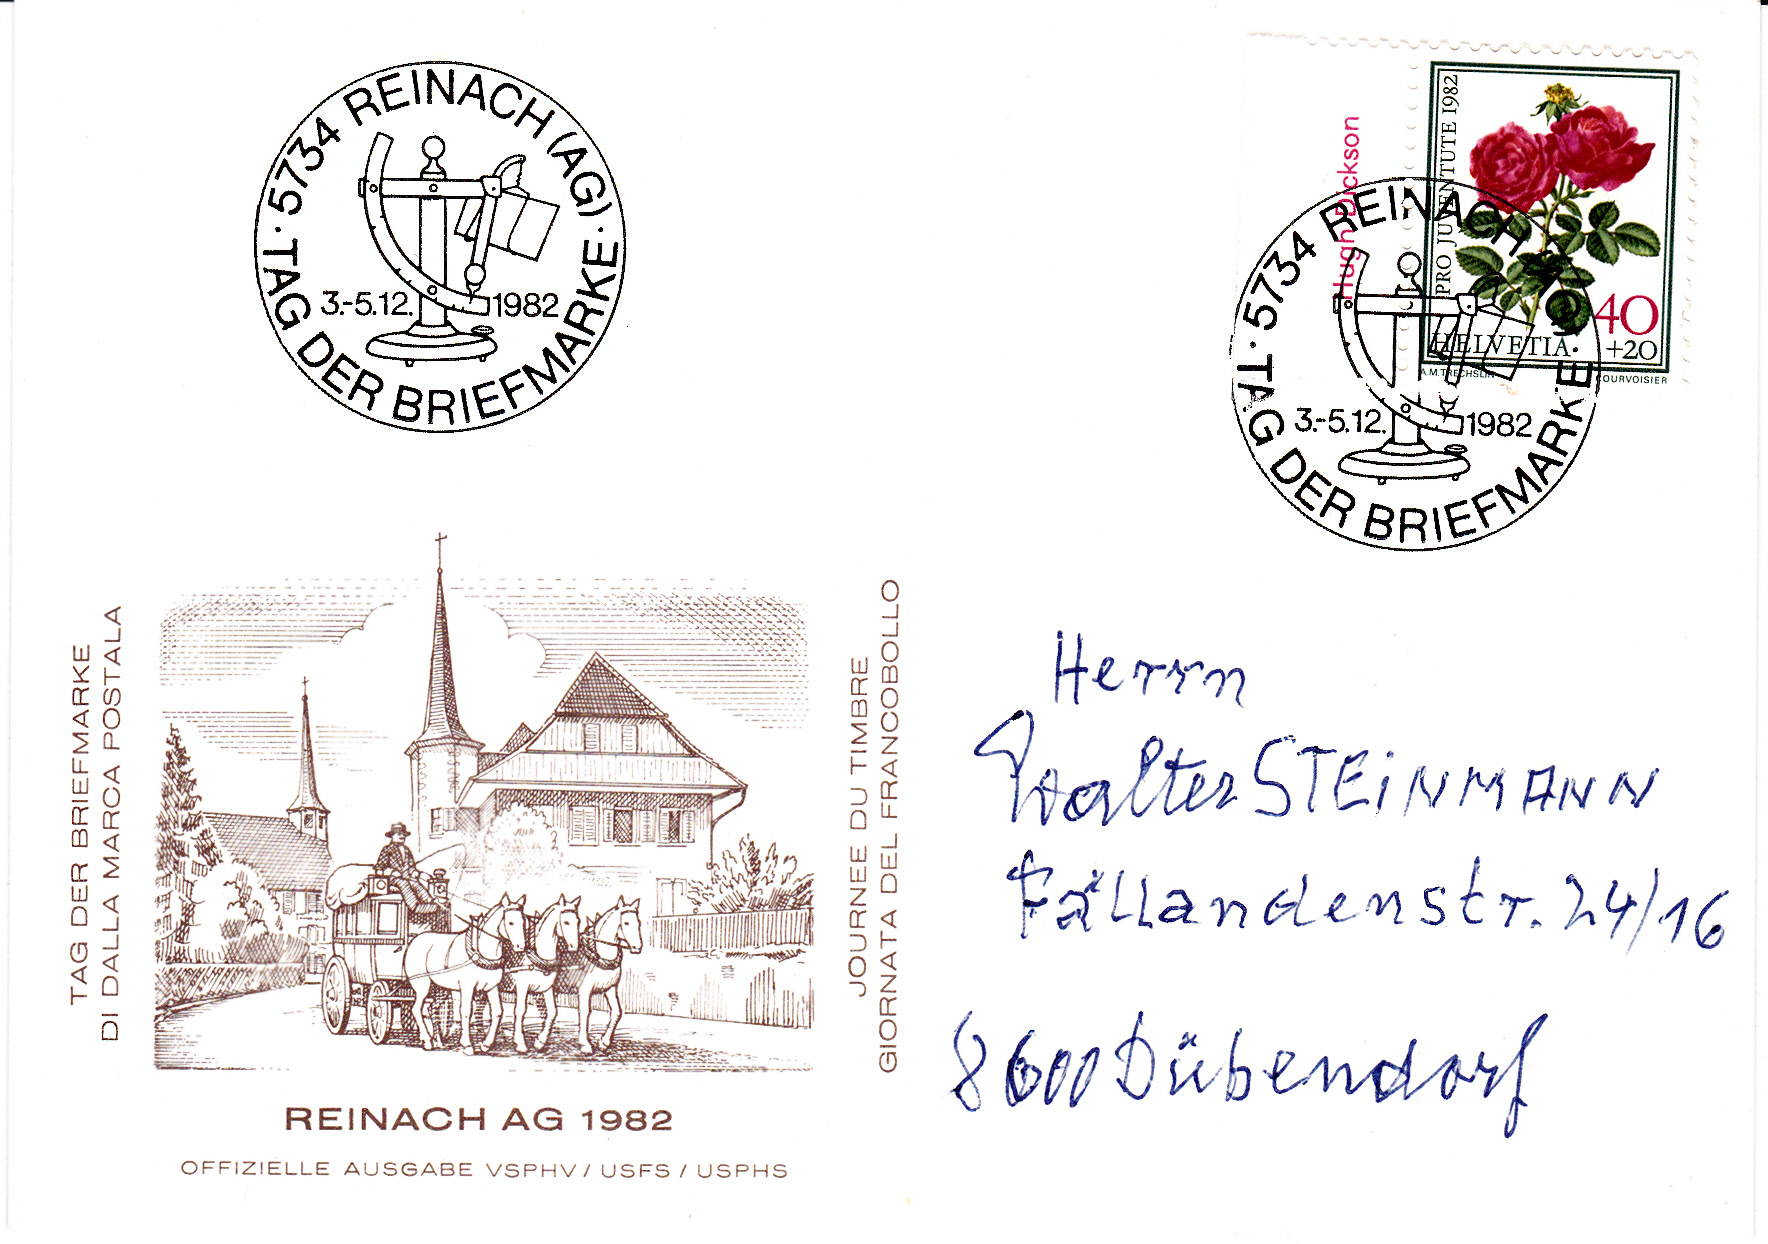 · 5734 REINACH (AG) ·
TAG DER BRIEFMARKE
3.-5.12. 1982
Hugh Dickson
PRO JUVENTUTE 1982
40
+20
HELVETIA
A.M. TRECHSLIN
COURVOISIER
· 5734 REINACH (AG)
TAG DER BRIEFMARKE
3.-5.12. 1982
TAG DER BRIEFMARKE
DI DALLA MARCA POSTALA
JOURNEE DU TIMBRE
GIORNATA DEL FRANCOBOLLO
REINACH AG 1982
OFFIZIELLE AUSGABE VSPHV / USFS / USPHS
Herrn
Walter STEiNMANN
Fällandenstr. 24/16
8600 Dübendorf